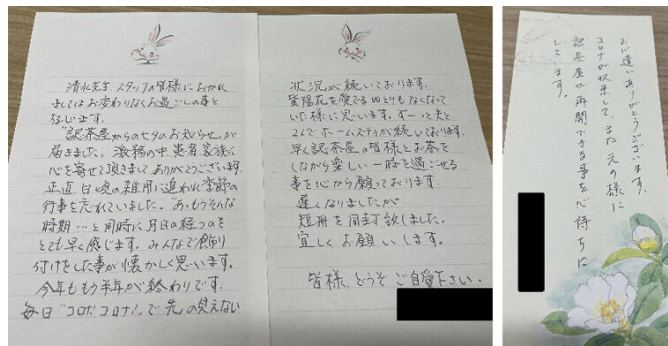 清水先生 スタッフの皆様におかれ
ましてはお変わりなくお過ごしの事と
存じます。
"認茶屋からの七夕のお知らせ"が
届きました。激務の中、患者家族に
心を寄せて頂きましてありがとうございます。
正直、日々の雑用に追われ季節の
行事を忘れていました。"あ、もうそんな
時期…と同時に月日の経つのを
とても早く感じます。みんなで飾り
付けをした事が懐かしく思います。
今年ももう半年が終わりです。
毎日"コロナ!コロナ!"で先の見えない
状況が続いております。
紫陽花を愛でるゆとりもなくなって
いた様に思います。ずーっと夫と
2人でホームステイが続いております。
早く認茶屋の皆様とお茶を
しながら楽しい一時を過ごせる
事を心から願っております。
遅くなりましたが
短冊を同封致しました。
宜しくお願いします。
皆様、どうぞご自愛下さい。
お心遣いありがとうございます。
コロナが収束して、また元の様に
認茶屋が再開できる事を心待ちに
しています。